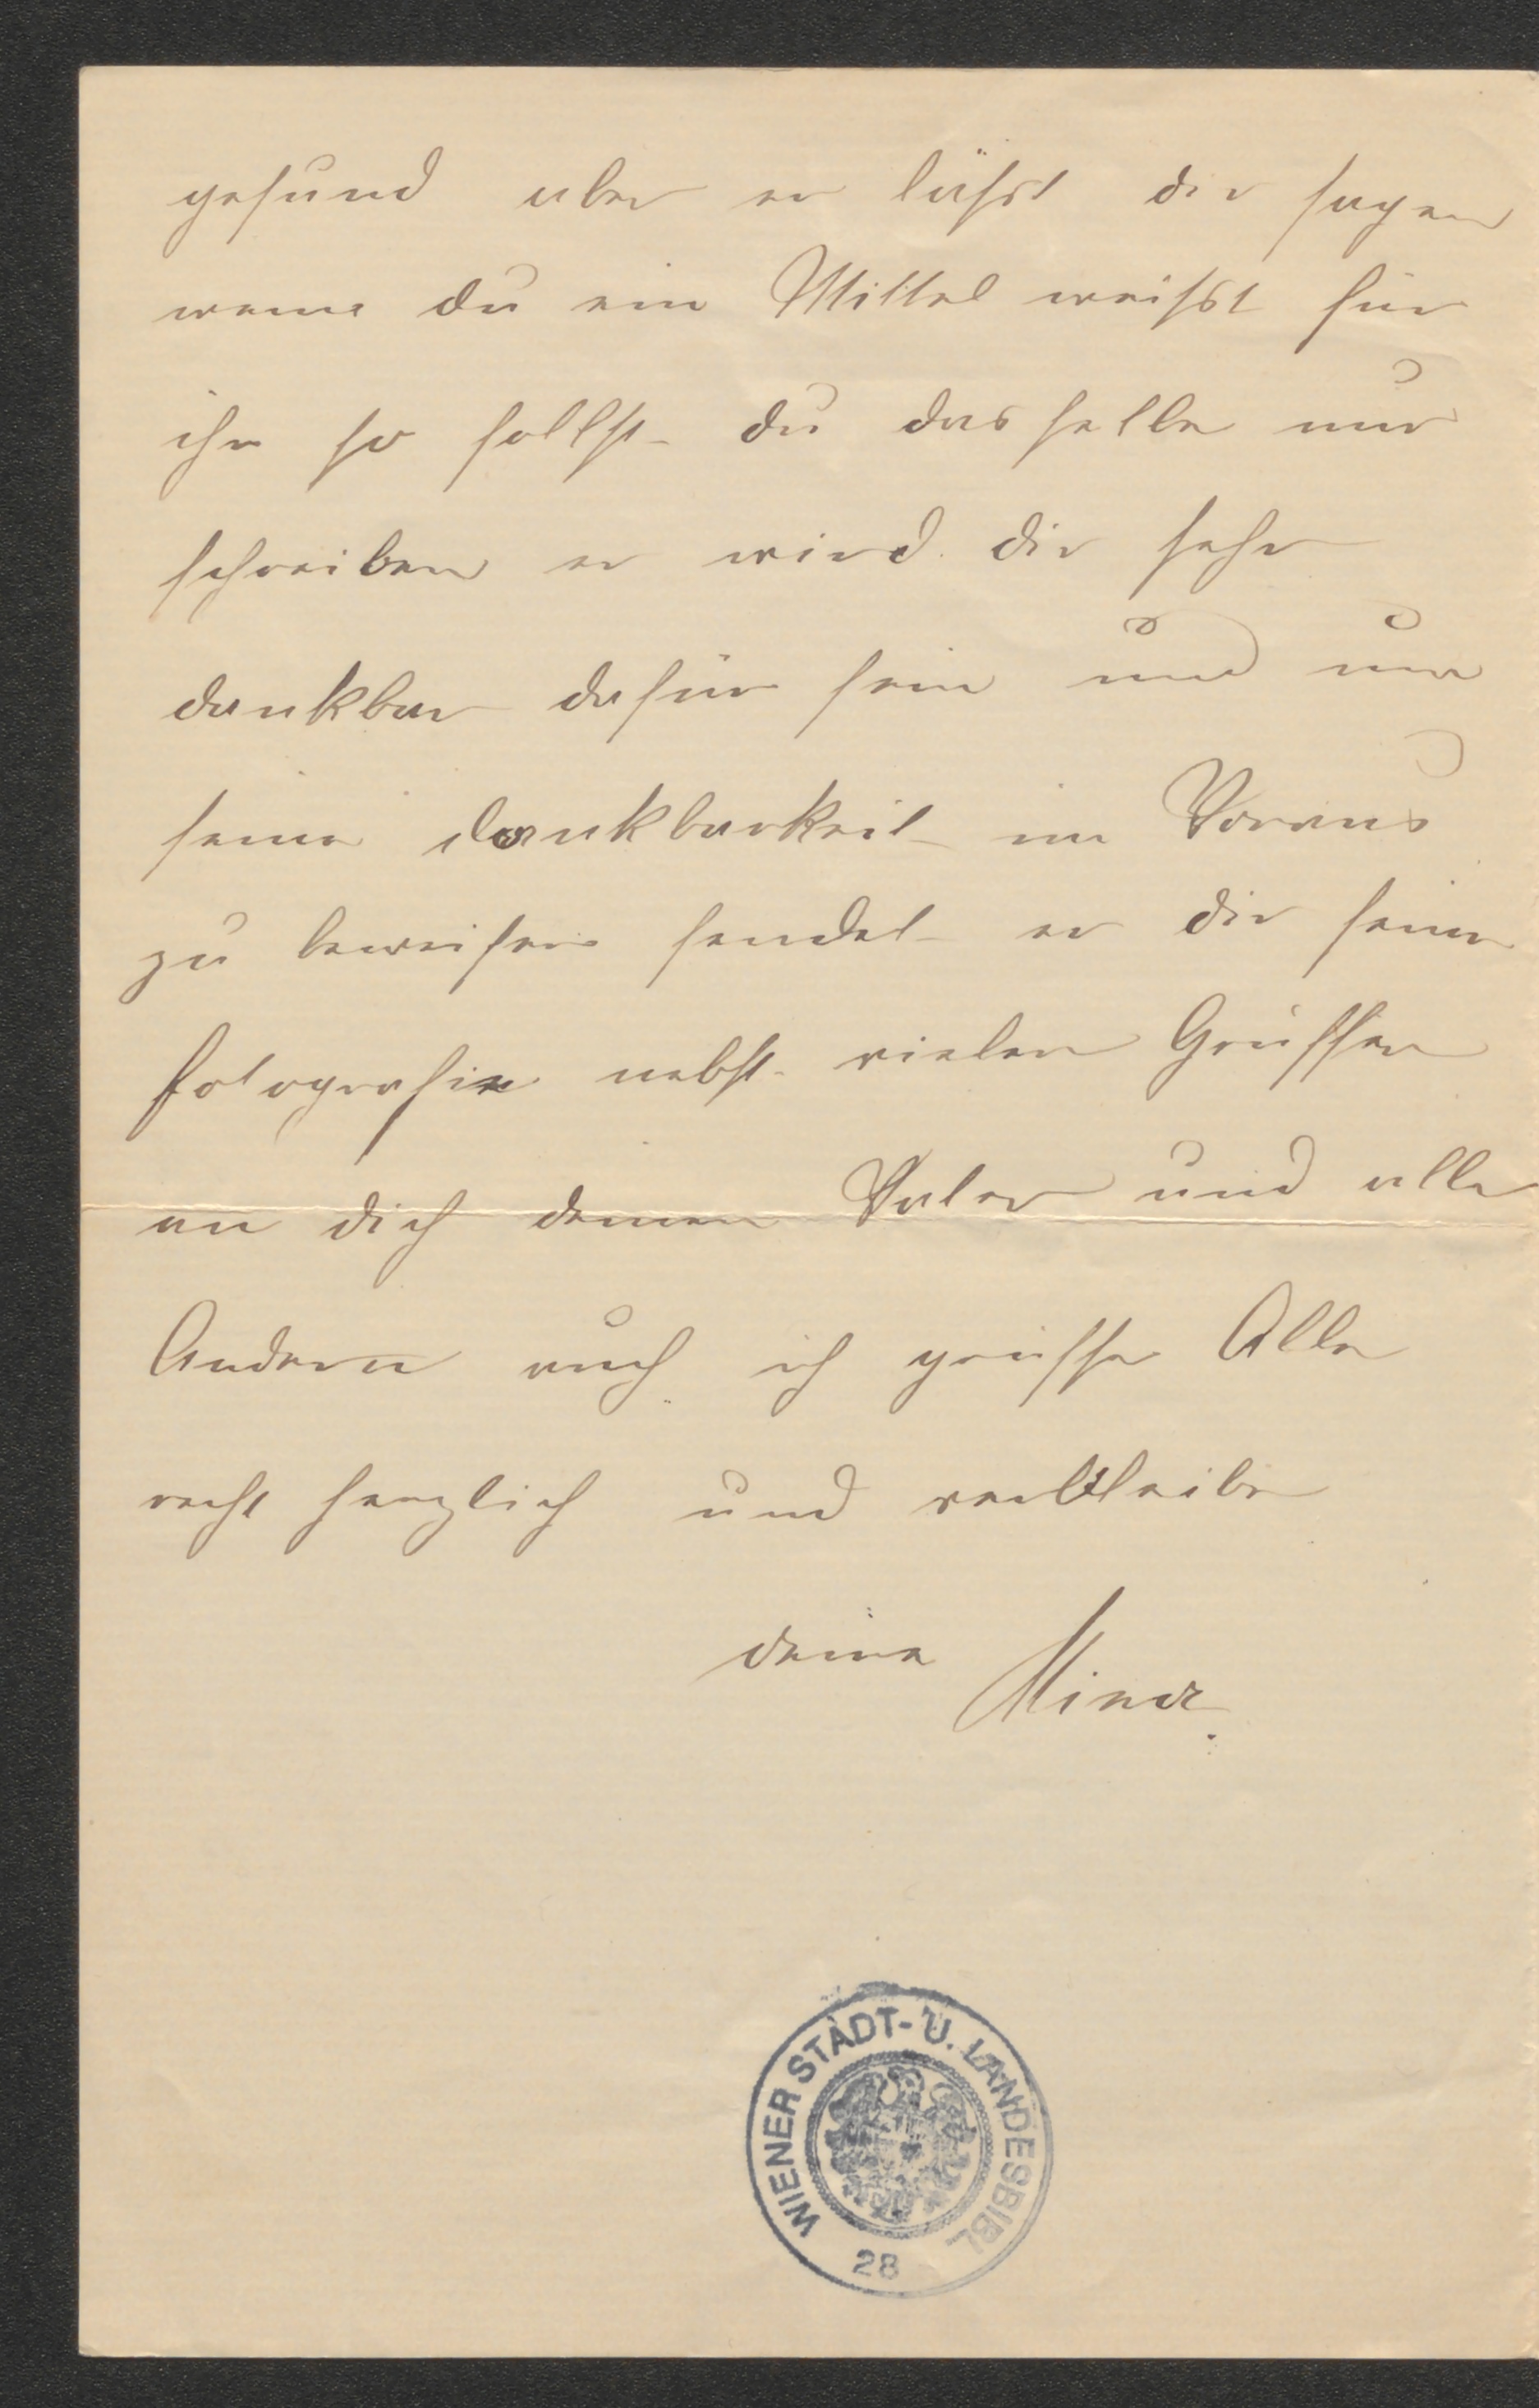 gesund aber er läßt dir sagen
wenn du ein Mittel weißt für
ihn so sollst du dasselbe nur
schreiben er wird dir sehr
dankbar dafür sein und um
seine dankbarkeit im Voraus
zu beweisen sendet er dir seine
fotografie nebst vielen Grüssen
an dich deinen Vater und alle
Andern auch ich grüsse Alle
recht herzlich und verbleibe
deine Mina
WIENER STADT- U. LANDESBIBL
28